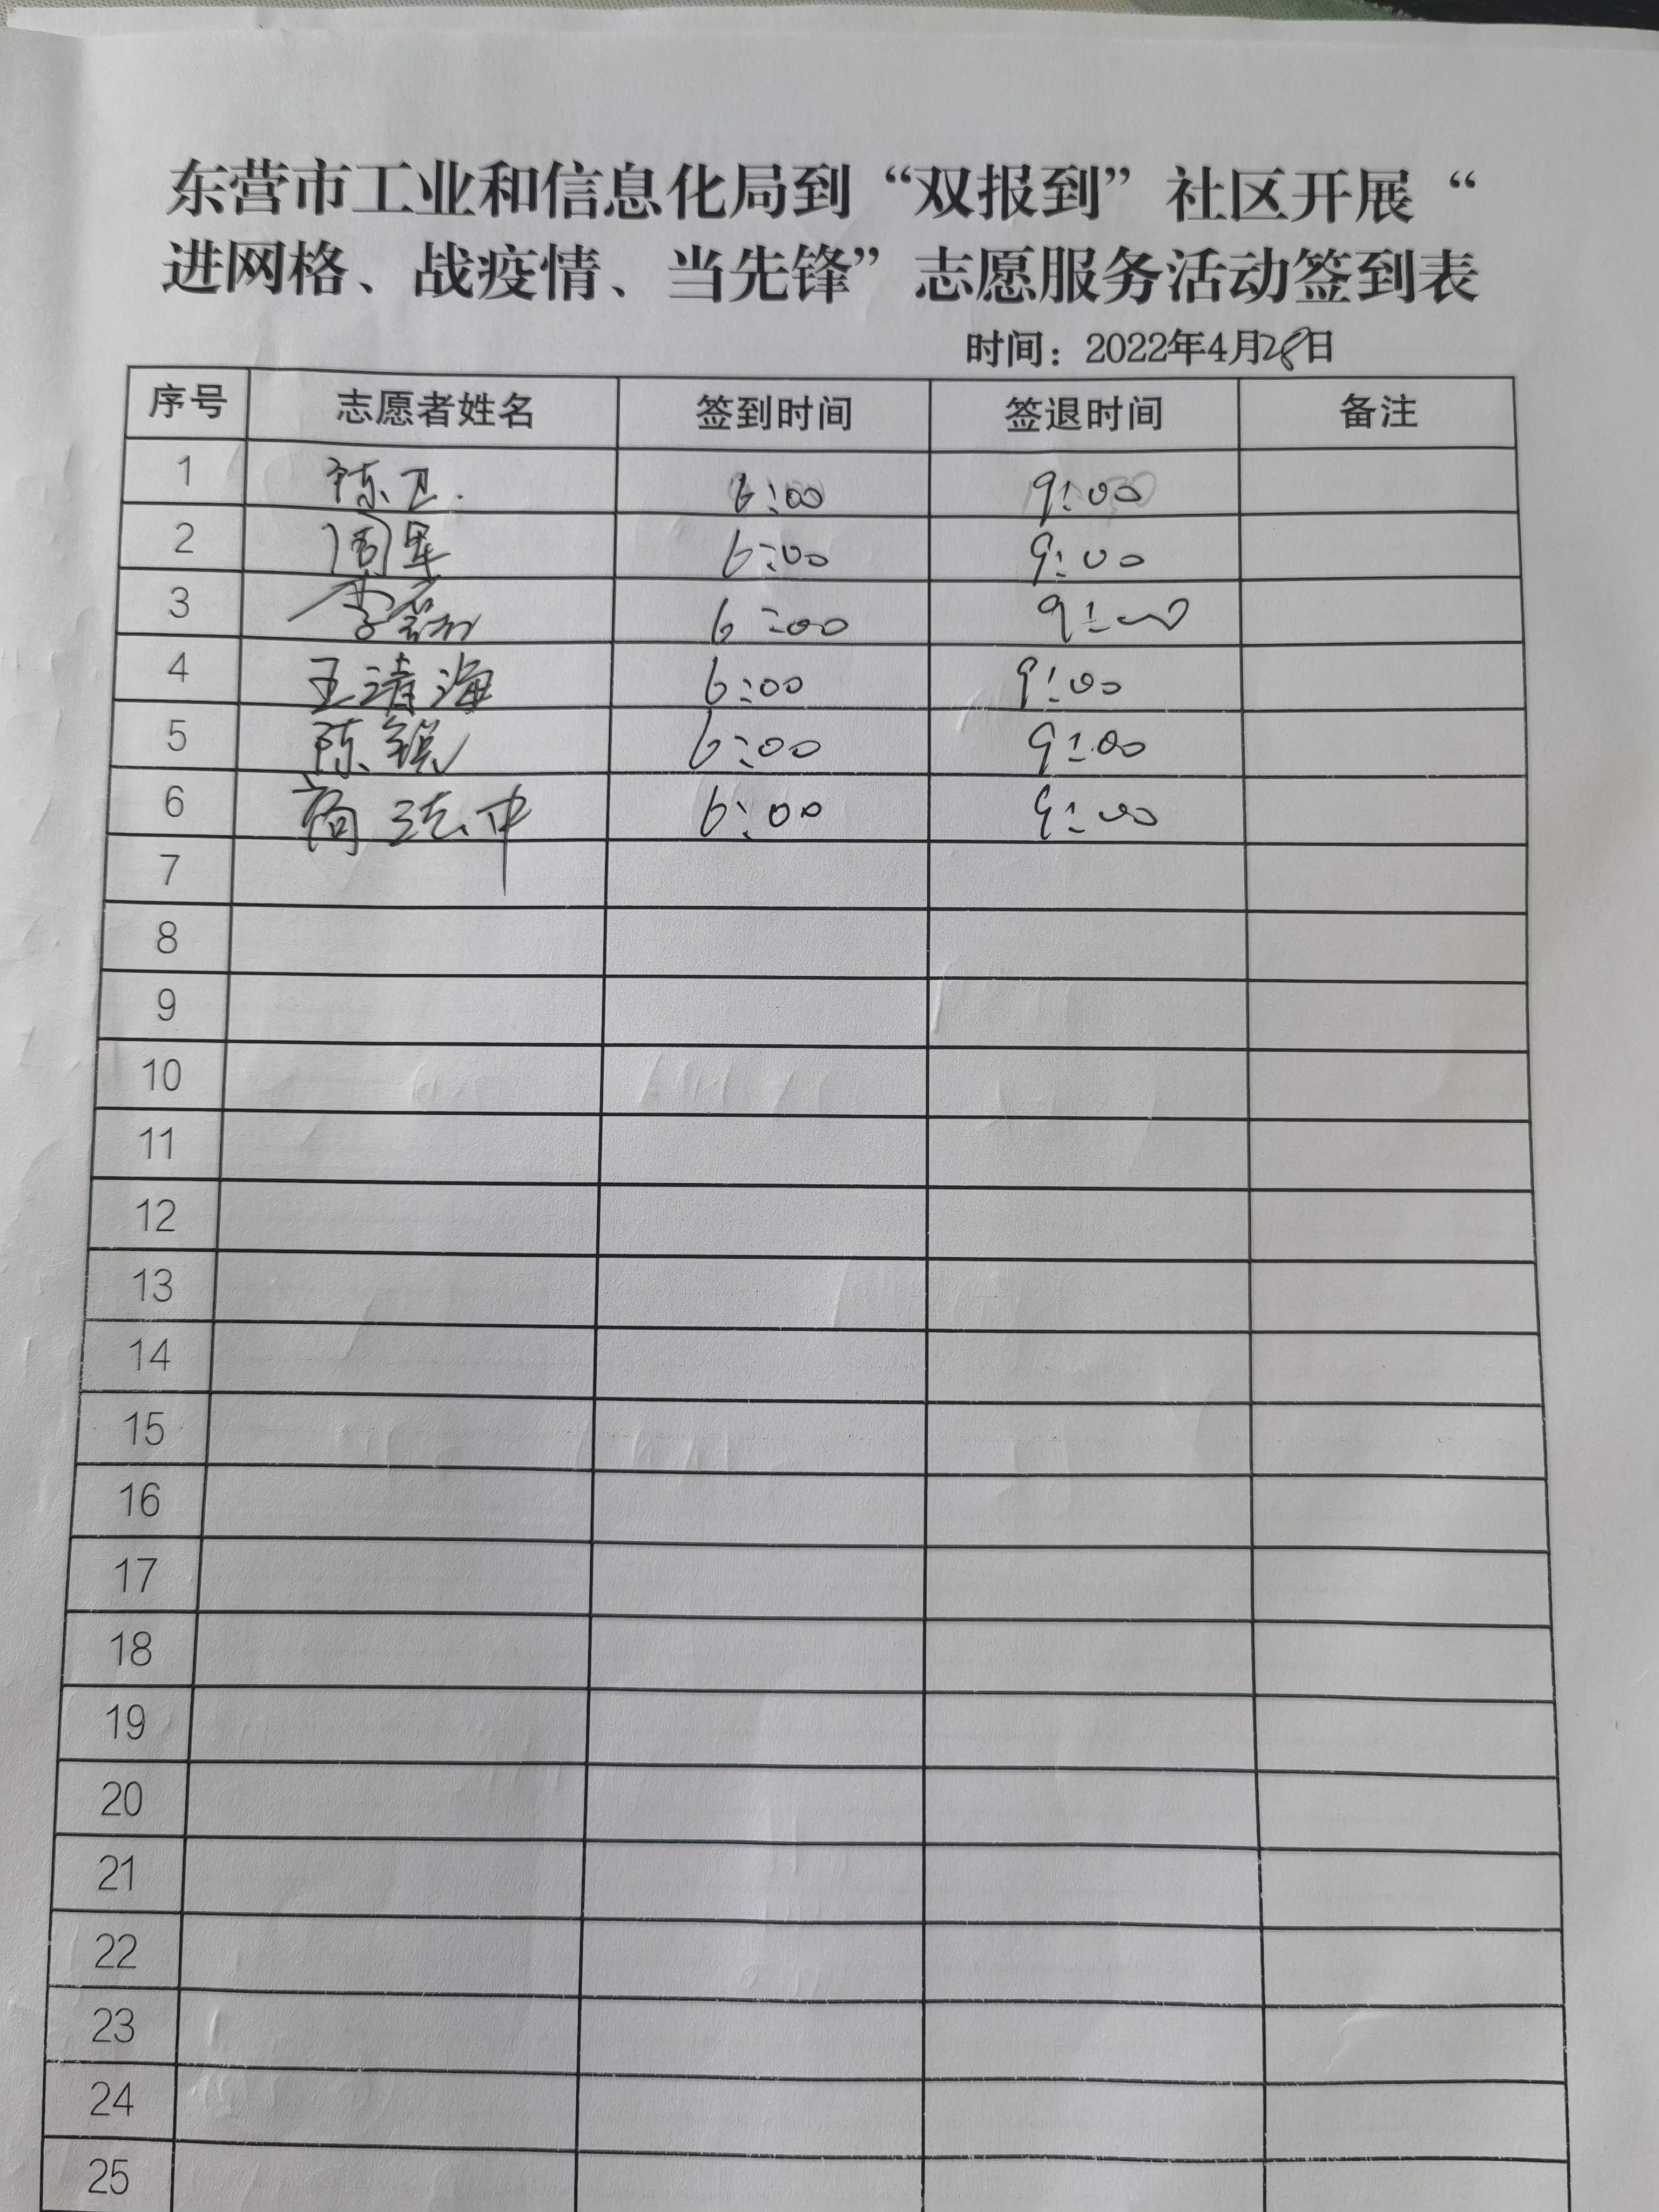 东营市工业和信息化局到“双报到”社区开展“
进网格、战疫情、当先锋”志愿服务活动签到表
时间：2022年4月28日
序号 志愿者姓名 签到时间 签退时间 备注
1 陈卫 6:00 9:00
2 周军 6:00 9:00
3 李 6:00 9:00
4 王清海 6:00 9:00
5 陈锐 6:00 9:00
6 6:00 9:00
7
8
9
10
11
12
13
14
15
16
17
18
19
20
21
22
23
24
25